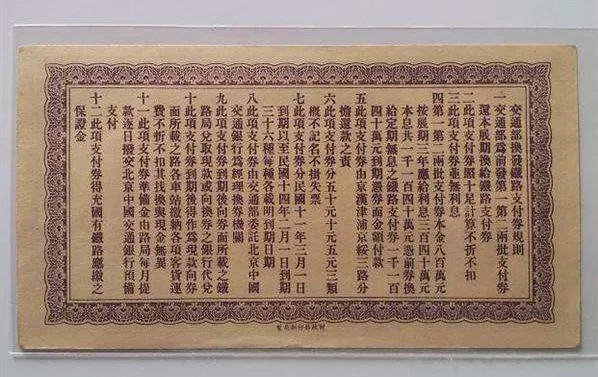 交通部換發鐵路支付券規則
一交通部爲前發第一第二兩批支付券
還本展期換給鐵路支付券
二此項支付券照十足計算不折不扣
三此項支付券並無利息
四第一第二兩批支付券本金八百萬元
按展期三年應給利息三百四十萬元
本息共一千一百四十萬元憑前券換
給定期無息之鐵路支付券一千一百
四十萬元到期憑券面金額付款
五此項支付券由京漢津浦京綏三路分
擔還款之責
六此項支付券分五十元十元五元三類
概不記名不掛失票
七此項支付券分民國十一年三月一日
到期以至民國十四年二月一日到期
三十六種每種各載明到期日期
八此項支付券由交通部委託北京中國
交通銀行爲經理換券機關
九此項支付券到期後向券面所載之鐵
路局兌取現款或向換券之銀行代兌
十此項支付券到期後得作爲現款向券
面所載之路各車站繳納各項客貨運
費不折不扣其找換與現金無異
十一此項支付券準備金由路局每月提
款逐日撥交北京中國交通銀行預備
支付
十二此項支付券得充國有鐵路應繳之
保證金
財政部印刷局製